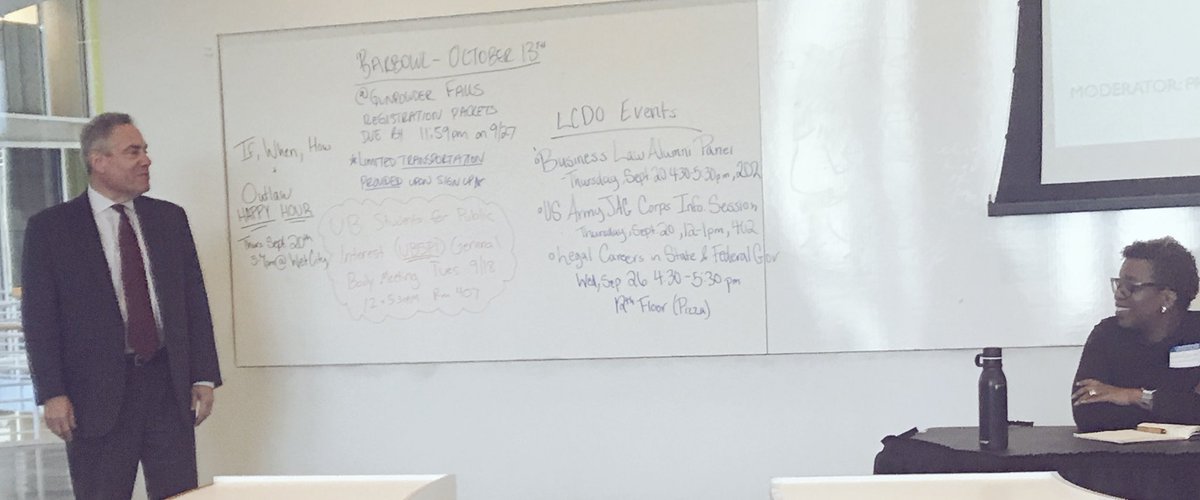 If, When, How
+
Outlaw
HAPPY HOUR
Thurs Sept 20th
5-7pm @ West City
BARBOWL - OCTOBER 13TH
@ GUNPOWDER FALLS
REGISTRATION PACKETS
DUE BY 11:59pm on 9/27
*LIMITED TRANSPORTATION
PROVIDED UPON SIGN UP*
UB Students for Public
Interest (UBSPI) General
Body Meeting Tues 9/18
Rm 407
LCDO Events
Business Law Alumni Panel
Thursday, Sept 20 4:30-5:30pm, 202
US Army JAG Corps Info. Session
Thursday, Sept 20, 12-1pm, 402
Legal Careers in State & Federal Gov
Wed, Sep 26 4:30-5:30 pm
12th Floor (Pizza)
MODERATOR: